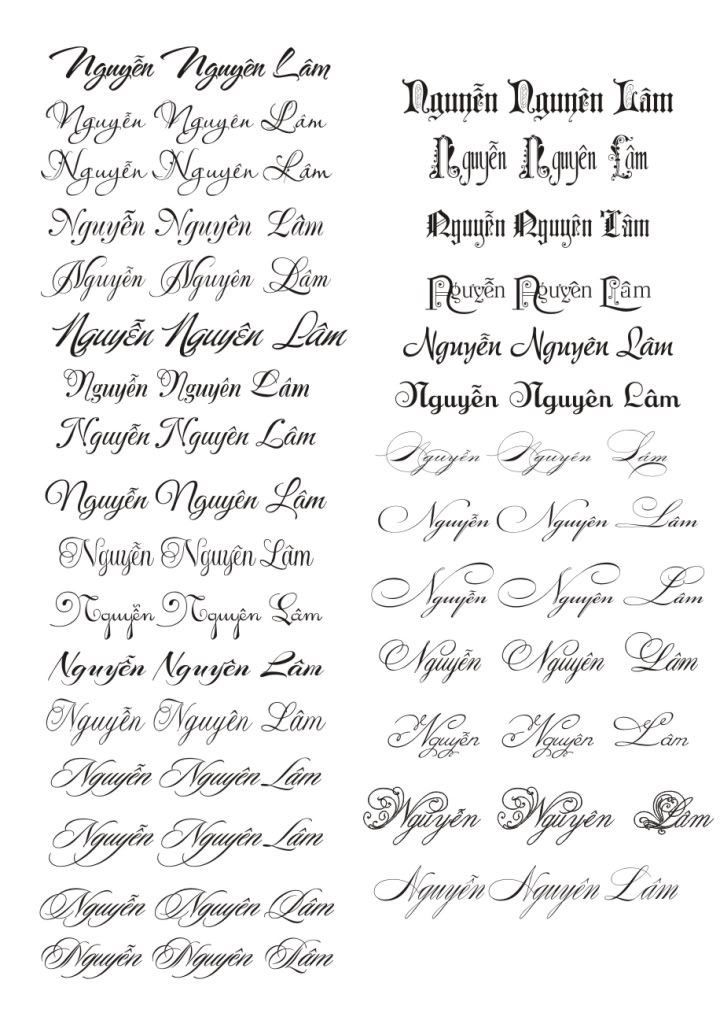 Nguyễn Nguyên Lâm
Nguyễn Nguyên Lâm
Nguyễn Nguyên Lâm
Nguyễn Nguyên Lâm
Nguyễn Nguyên Lâm
Nguyễn Nguyên Lâm
Nguyễn Nguyên Lâm
Nguyễn Nguyên Lâm
Nguyễn Nguyên Lâm
Nguyễn Nguyên Lâm
Nguyễn Nguyên Lâm
Nguyễn Nguyên Lâm
Nguyễn Nguyên Lâm
Nguyễn Nguyên Lâm
Nguyễn Nguyên Lâm
Nguyễn Nguyên Lâm
Nguyễn Nguyên Lâm
Nguyễn Nguyên Lâm
Nguyễn Nguyên Lâm
Nguyễn Nguyên Lâm
Nguyễn Nguyên Lâm
Nguyễn Nguyên Lâm
Nguyễn Nguyên Lâm
Nguyễn Nguyên Lâm
Nguyễn Nguyên Lâm
Nguyễn Nguyên Lâm
Nguyễn Nguyên Lâm
Nguyễn Nguyên Lâm
Nguyễn Nguyên Lâm
Nguyễn Nguyên Lâm